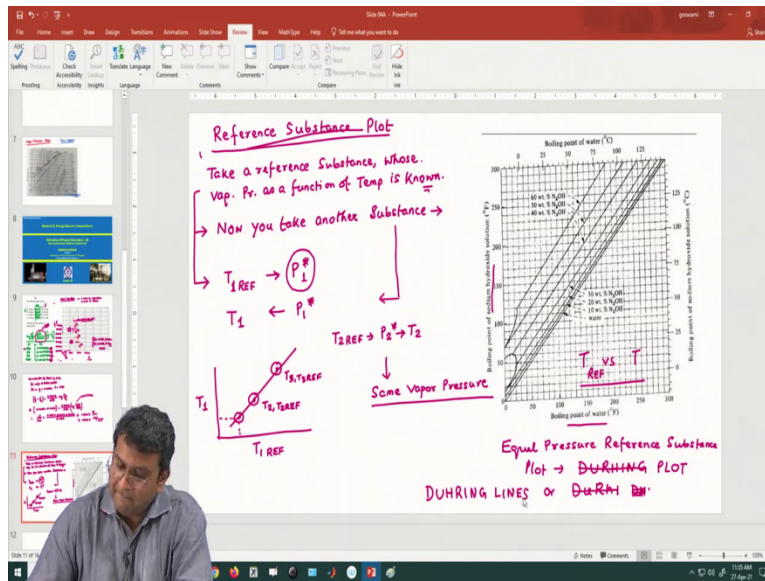 Slide 04A - PowerPoint
goswami
File Home Insert Draw Design Transitions Animations Slide Show Review View MathType Help Tell me what you want to do
Spelling Thesaurus Check Accessibility Smart Lookup Translate Language New Comment Delete Previous Next Show Comments Compare Accept Reject Previous Next Reviewing Pane End Review Hide Ink
Proofing Accessibility Insights Language Comments Compare Ink
7
8
9
10
11
12
Reference Substance Plot
Take a reference Substance, whose.
vap. Pr. as a function of Temp is Known.
→ Now you take another Substance →
T1 REF → P1*
T1 ← P1*
T2REF → P2* → T2
Same Vapor Pressure
T1
T3, T3REF
T2, T2REF
T1 REF
Boiling point of water (°C)
0 25 50 75 100 125
300
250
200
150
100
50
0
Boiling point of sodium hydroxide solution (°F)
60 wt. % NaOH
50 wt. % NaOH
40 wt. % NaOH
30 wt. % NaOH
20 wt. % NaOH
10 wt. % NaOH
Water
125
100
75
50
25
0
Boiling point of sodium hydroxide solution (°C)
T REF vs T
0 50 100 150 200 250 300
Boiling point of water (°F)
Equal Pressure Reference Substance
Plot → DURHING PLOT
DUHRING LINES or DuRhi
Slide 11 of
Notes Comments
100%
11:35 AM
27-Apr-21